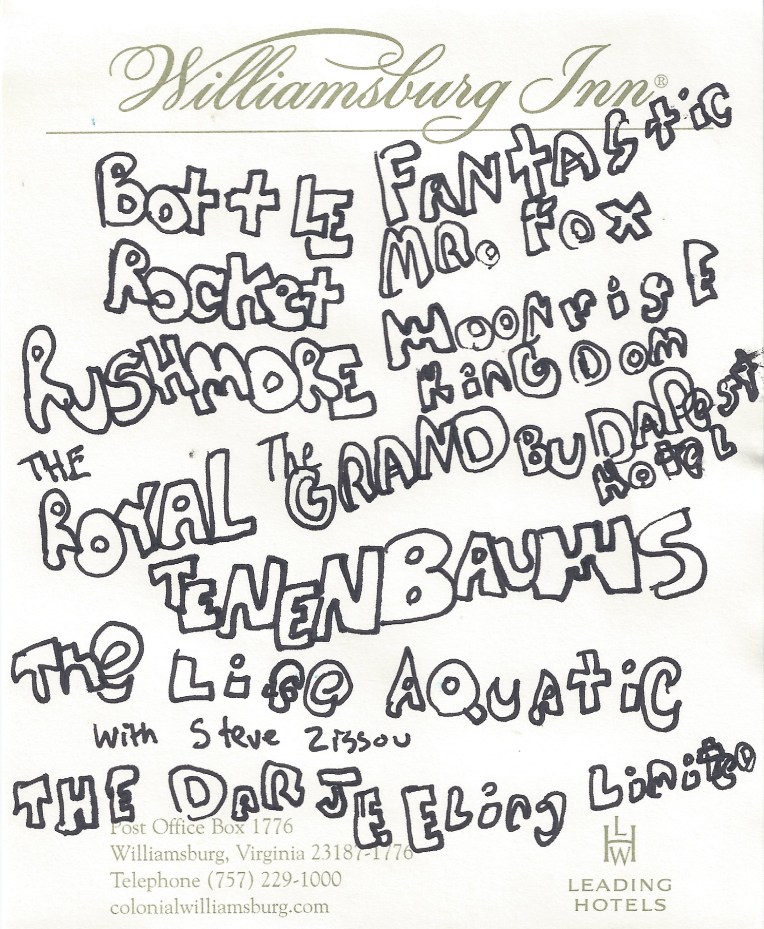 Williamsburg Inn®
Bottle
Rocket
Fantastic
Mr. Fox
RUSHMORE
Moonrise
Kingdom
THE
ROYAL
TENENBAUMS
The
GRAND BUDAPEST
Hotel
The Life AQUATiC
with Steve Zissou
THE DARJEELing Limited
Post Office Box 1776
Williamsburg, Virginia 23187-1776
Telephone (757) 229-1000
colonialwilliamsburg.com
LHW
LEADING
HOTELS